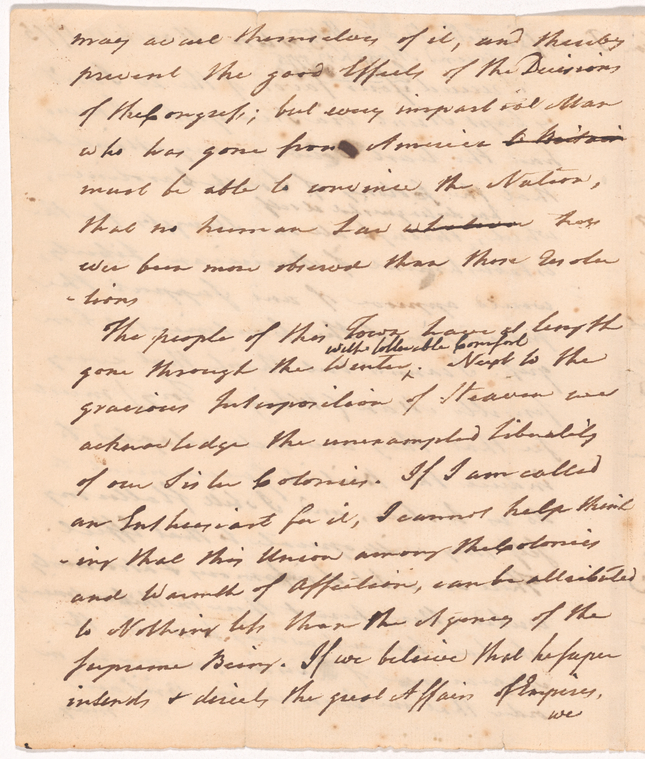 may avail themselves of it, and thereby
prevent the good Effects of the Decisions
of the Congress; but every impartial Man
who has gone from America to Britain
must be able to convince the Nation,
that no human Law whatever has
ever been more observed than those Resolu
-tions
The people of this Town have at length
with tollerable Comfort
gone through the Winter. Next to the
gracious Interposition of Heaven we
acknowledge the unexampled Liberality
of our Sister Colonies. If I am called
an Enthusiast for it, I cannot help think
-ing that this Union among the Colonies
and Warmth of Affection, can be attributed
to Nothing less than the Agency of the
supreme Being. If we believe that he super
intends & directs the great Affairs of Empires,
we